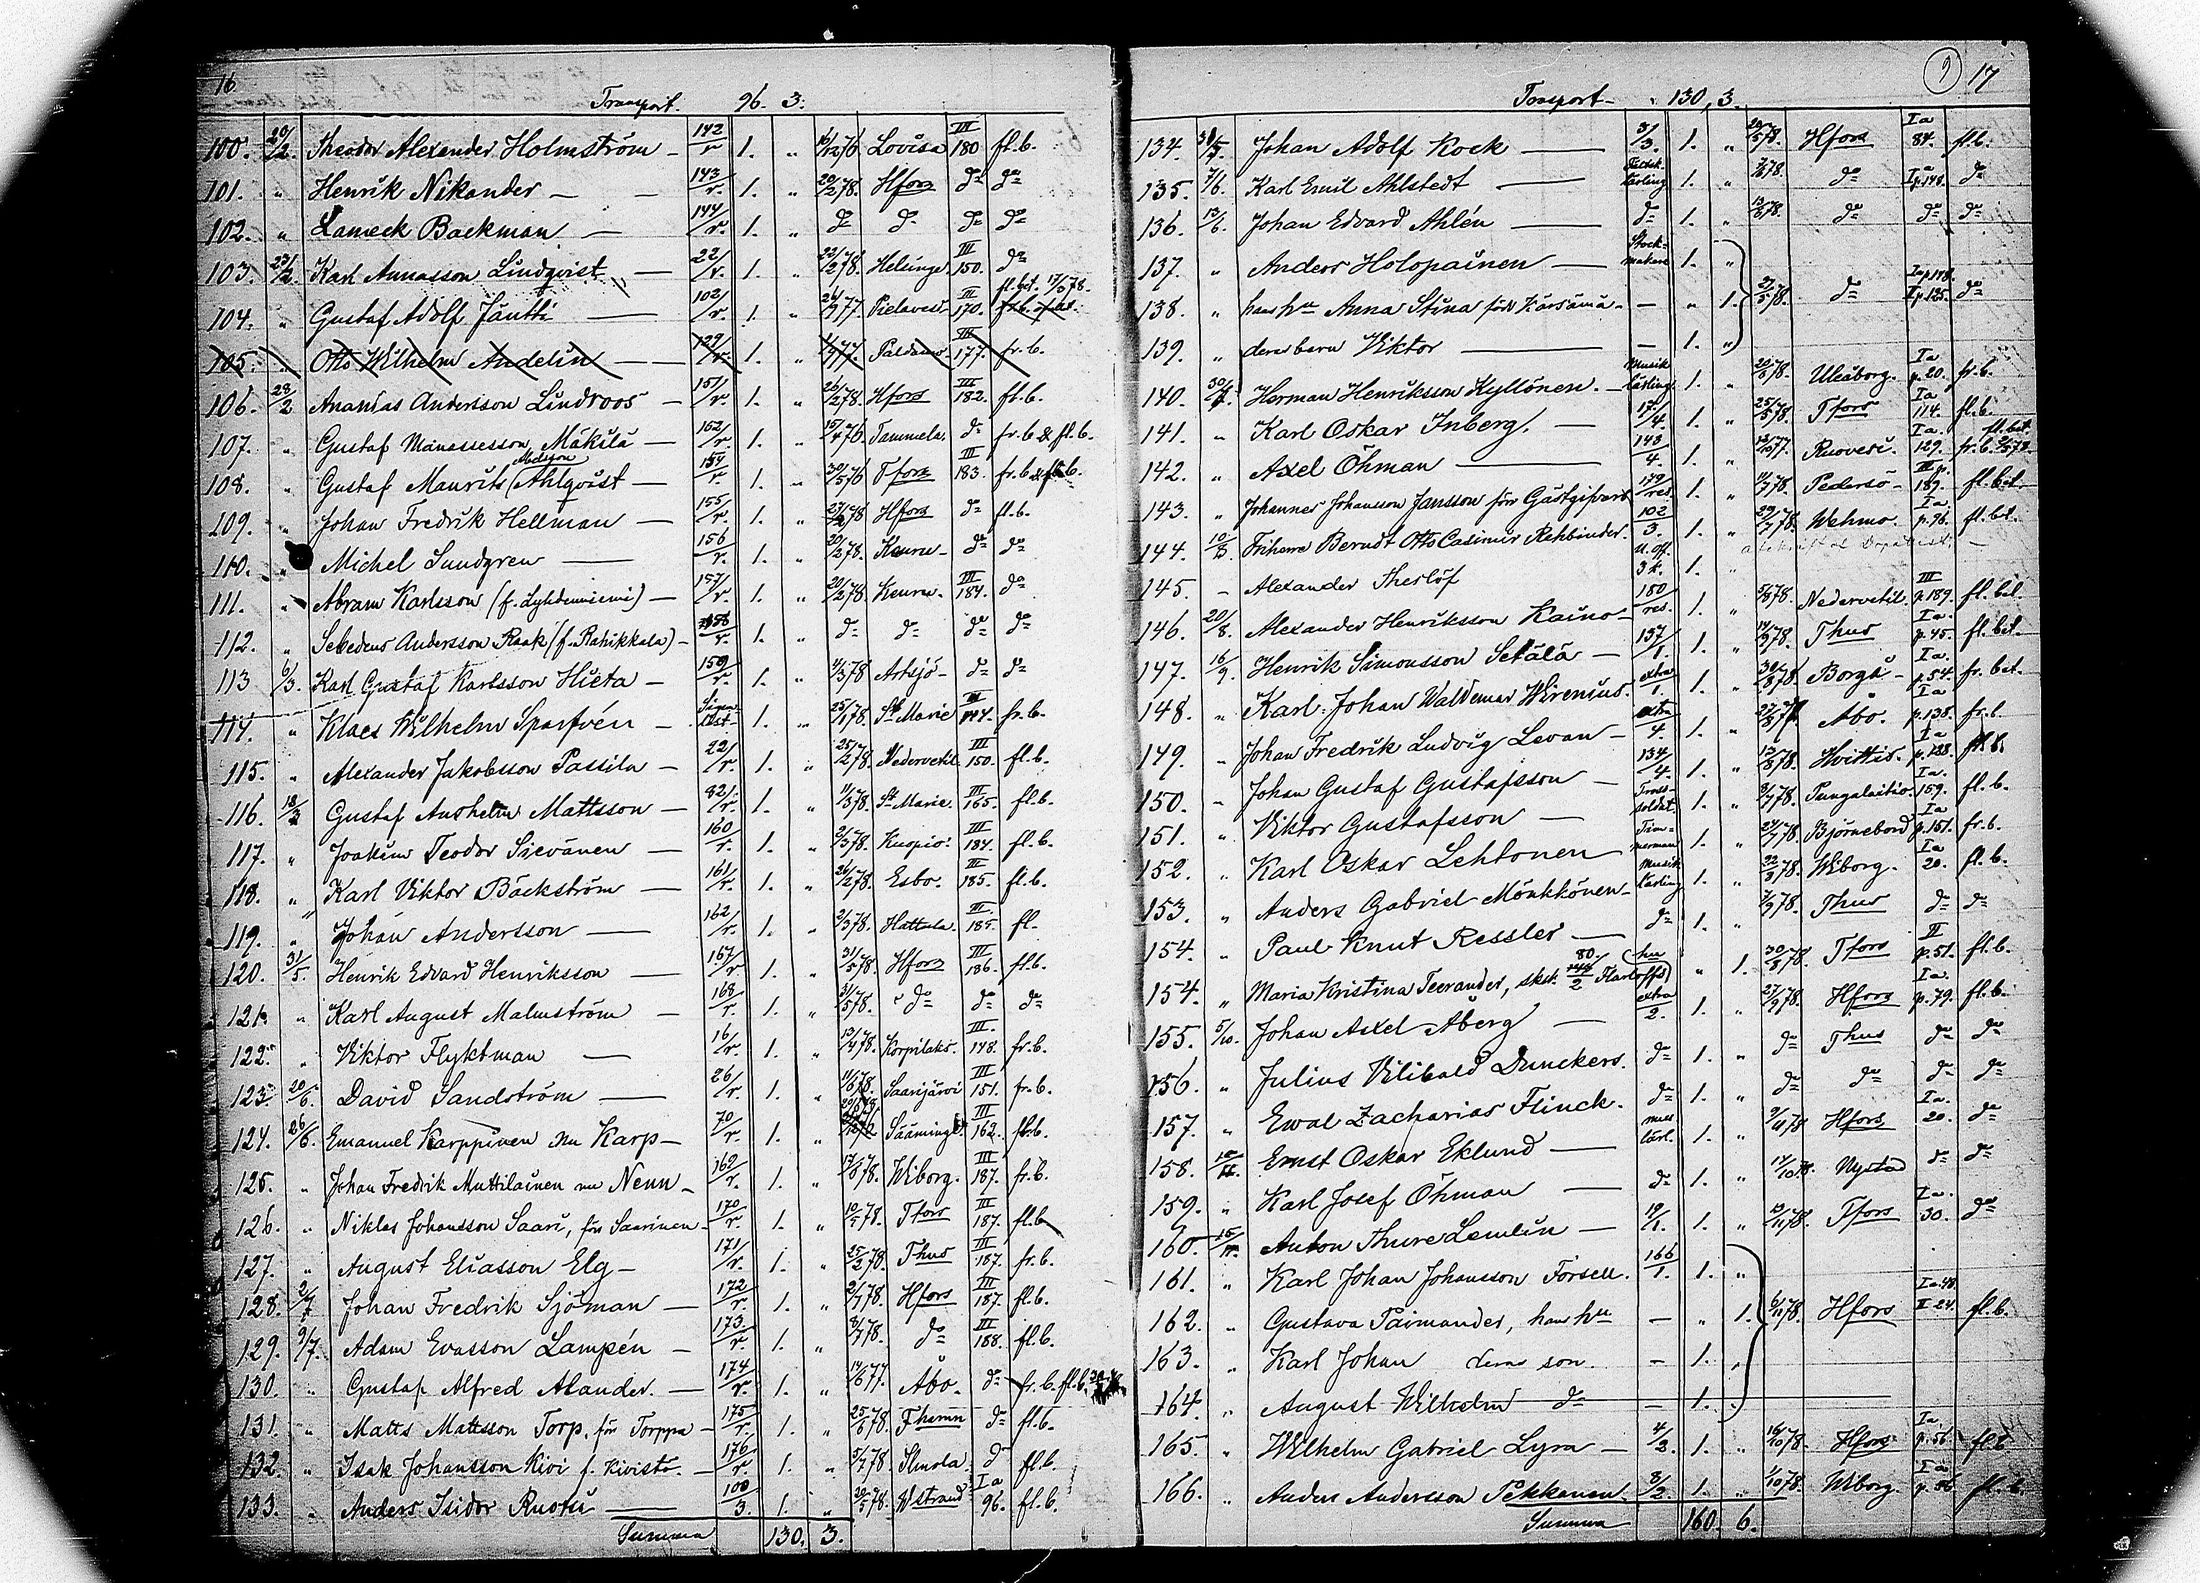 16
Transport. 96. 3.
100. 20/2. Theodor Alexander Holmström — 142/r 1. „ 76 Lovisa III 180 fl.b.
101. „ Henrik Nikander — 143/r. 1. „ 20/2 78. Hfors do do
102. „ Lameck Backman — 144/r. 1. „ do do do do
103. 23/2. Karl Annasson Lindqvist — 22/r. 1. „ 22/2 78. Helsinge III 150. do
104. „ Gustaf Adolf Jäntti — 102/r. 1. „ 77. Pielavesi III 170. fl.bet. 78.
105. „ Otto Wilhelm Andelin — 129/r. 1. „ 77. Paldamo III 177. fr.b.
106. 28/2 Ananias Andersson Lindroos — 151/r. 1. „ 26/2 78. Hfors III 182. fl.b.
107. „ Gustaf Manassesson Mäkilä — 152/r. 1. „ 76. Tammela. do fr.b & fl.b.
108. „ Gustaf Maurits Ahlqvist — 154/r. 1. „ 30/5 76 Tfors III 183. fr.b & fl.b.
109. „ Johan Fredrik Hellman — 155/r. 1. „ 78 Hfors do fl.b.
110. „ Michel Sundgren — 156/r. 1. „ 20/2 78. Keuru do do
111. „ Abram Karlsson — 157/r. 1. „ 20/2 78 Keuru III 184. do
112. „ Sebedeus Andersson Raak (f. Rahikkala) — 158/r. 1. „ do do do do
113 6/3. Karl Gustaf Karlsson Hieta — 159/r. 1. „ 4/3 78 Artsjö do do
114. „ Klaes Wilhelm Sparfvén — 1. „ 25/1 78. St Marie III fr.b.
115. „ Alexander Jakobsson Passila — 22/r. 1. „ 25/2 78. Nedervetil III 150. fl.b.
116. 18/3 Gustaf Anshelm Mattsson — 82/r 1. „ 11/3 78. St Marie. III 165. fl.b.
117. „ Joakim Teodor Sievänen — 160/r. 1. „ 2/3 78. Kuopio. III 184. fl.b.
118. „ Karl Viktor Bäckström — 161/r. 1. „ 26/2 78. Esbo. III 185. fl.b.
119. „ Johan Andersson — 162/r. 1. „ 2/3 78. Hattula. III. 185. fl.
120. 31/5. Henrik Edvard Henriksson — 167/r 1. „ 31/5 78. Hfors III 186. fl.b.
121. „ Karl August Malmström — 168/r. 1. „ 31/5 78. do do do
122. „ Viktor Flyktman — 16/r. 1. „ 13/4 78. Korpilaks. III. 148. fr.b.
123. 20/6. David Sandström — 26/r. 1. „ 78. Saarijärvi III 151. fr.b.
124. 26/6. Emanuel Karppinen nu Karp — 70/r. 1. „ Sääminge III 162. fl.b.
125. „ Johan Fredrik Muttilainen nu Nenn — 169/r. 1. „ 78. Wiborg. III 187. fr.b.
126. „ Niklas Johansson Saari, för Saarinen — 170/r. 1. „ 10/5 78. Tfors III 187. fl.b
127. „ August Eliasson Elg — 171/r. 1. „ 25/2 78. Thus III 187. fr.b.
128. 2/7 Johan Fredrik Sjöman — 172/r. 1. „ 2/7 78. Hfors III 187. fl.b.
129. 9/7. Adam Evasson Lampén — 173/r. 1. „ 8/7 78. do III 188. fl.b.
130. „ Gustaf Alfred Alander. — 174/r. 1. „ 14/6 77. Åbo. do fr.b. fl.b.
131. „ Matts Mattsson Torp, för Torppa — 175/r. 1. „ 25/6 78. Fhamn do fl.b.
132. „ Isak Johansson Kivi f. Kivistö. — 176/r. 1. „ 5/7 78. Ilmola. do fl.b.
133. „ Anders Isidor Ruotsi — 100/3. 1. „ 20/5 78. Wstrand Ia 96. fl.b.
Summa 130. 3.
9 17
Transport 130, 3.
134. Johan Adolf Kock — 3/3. 1. „ 78. Hfors Ia 84. fl.b.
135. 7/6. Karl Emil Ahlstedt — lärling 1. „ 78. do Ia p.148. do
136. 13/6. Johan Edvard Ahlén — do 1. „ 13/6 78. do do do
137. „ Anders Holopainen — Stockmakare 1. „
138. „ hans hu Anna Stina född Kärsämä — „ 1. 27/5 78. do Ia p.148. do
139. „ deras barn Viktor — 1. „
140. Herman Henriksson Kyllönen. — Musiklärling 1. „ 78. Uleåborg. Ia p.20. fr.b.
141. „ Karl Oskar Inberg. — 17/4. 1. „ 25/5 78. Tfors Ia 114. fl.b.
142. „ Axel Öhman — 148/4. 1. „ 77. Ruovesi. Ia. 129. fr.b. fl.bet.
143. „ Johannes Johansson Jansson för Gästgifvars 179/res. 1. „ 78. Pedersö III p. 189. fl.bet.
144. Friherre Berndt Otto Casimir Rehbinder. 102/3. 1. „ 29/7 78. Wehmo. Ia. p.96. fl.bt.
145. – Alexander Therlöf U.off. 3 k. 1. „
146. 20/8. Alexander Henriksson Kaino — 180/res. 1. „ 78. Nedervetil. III p.189. fl.bet.
147. 16/9. Henrik Simonsson Setälä — 157/1. 1. „ 78. Thus Ia. p.45. fl.bet.
148. „ Karl Johan Waldemar Wirenius. extra/1. 1. „ 30/8 78. Borgå Ia. p.54. fr.bet.
149. „ Johan Fredrik Ludvig Levan — extra/4. 1. „ Åbo. Ia p.138. fr.b.
150. „ Johan Gustaf Gustafsson — 134/4. 1. „ 78. Hvittis. Ia p.138. fl.b.
151. „ Viktor Gustafsson — Trossoldat. 1. „ 78. Pungalaitio. Ia. 159. fl.b.
152. „ Karl Oskar Lehtonen Timmerman 1. „ 78. Björneborg Ia p.151. fr.b.
153. „ Anders Gabriel Mönkkönen — Musiklärling 1. „ 22/3 78. Wiborg. Ia 20. fl.b.
154. „ Paul Knut Ressler — do 1. „ 78. Thus do do
154. „ Maria Kristina Teerander, 80./2 Karloffs hu „ 1. 30/8 78. Tfors II p.51. fl.b.
155. 5/10. Johan Axel Åberg — extra/2. 1. „ 27/9 78. Hfors Ia. p.79. fl.b.
156. „ Julius Vilibald Dunckers. do 1. „ do Thus do do
157. „ Ewal Zacharias Flinck. do 1. „ do do do do
158. Ernst Oskar Eklund — lärl. 1. „ 78 Hfors Ia. 20. do
159. „ Karl Josef Öhman — do 1. „ 78. Nystad do do
160. Anton Thure Lemlin — 19/1. 1. „ 78. Tfors Ia. 30. do
161. „ Karl Johan Johansson Forsell. 166/1. 1. „
162. „ Gustava Paimander, hans hu — „ 1. 78. Hfors Ia.48. II 24. fl.b.
163. „ Karl Johan deras son. — 1. „
164. „ August Wilhelm do — 1. „
165. „ Wilhelm Gabriel Lyra — 4/2. 1. „ 16/10 78. Hfors Ia p.56.
166. „ Anders Andersson Pekkanen. 8/2 1. „ 78. Wiborg. Ia p.56 fl.b.
Summa 160. 6.